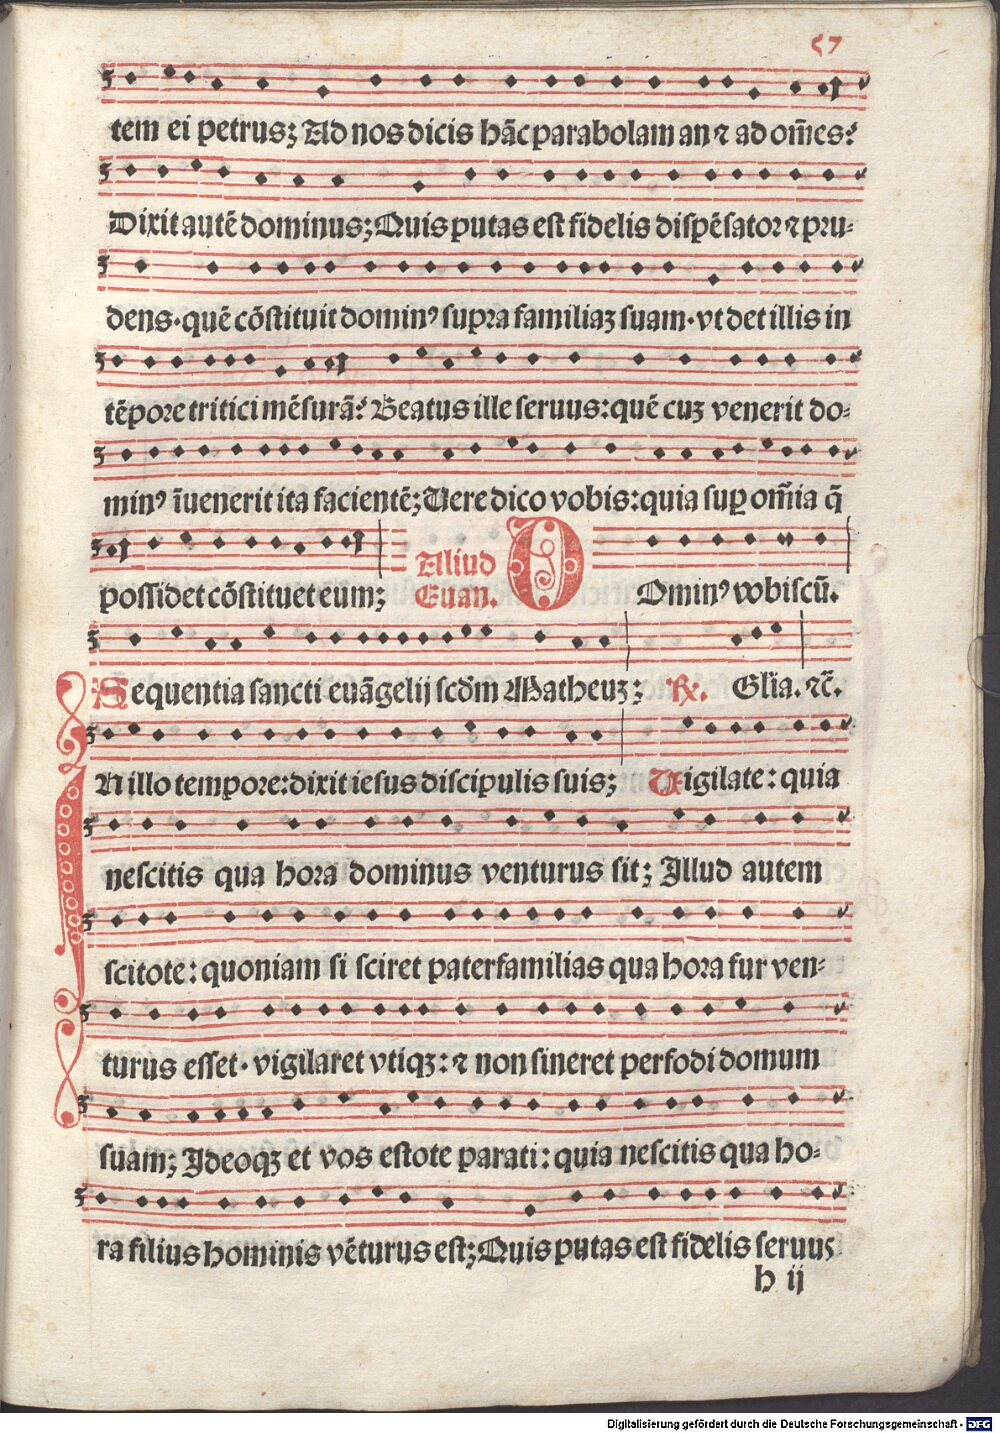 57
tem ei petrus; Ad nos dicis hāc parabolam an ⁊ ad om̄es?
Dixit autē dominus; Quis putas est fidelis dispēsator ⁊ pru⸗
dens· quē cōstituit dominꝰ supra familiaꝫ suam· vt det illis in
tēpore tritici mēsurā? Beatus ille seruus: quē cuꝫ venerit do⸗
minꝰ īuenerit ita facientē; Uere dico vobis: quia suꝑ om̄ia q̄
possidet cōstituet eum;
Aliud
Euan.
Dominꝰ vobiscū.
Sequentia sancti euāgelij scd̄m Matheuꝫ; ℟. Glīa. ⁊c̄.
IN illo tempore: dixit iesus discipulis suis; Uigilate: quia
nescitis qua hora dominus venturus sit; Illud autem
scitote: quoniam si sciret paterfamilias qua hora fur ven⸗
turus esset· vigilaret vtiqꝫ: ⁊ non sineret perfodi domum
suam; Ideoqꝫ et vos estote parati: quia nescitis qua ho⸗
ra filius hominis vēturus est; Quis putas est fidelis seruus
h ij
Digitalisierung gefördert durch die Deutsche Forschungsgemeinschaft - DFG